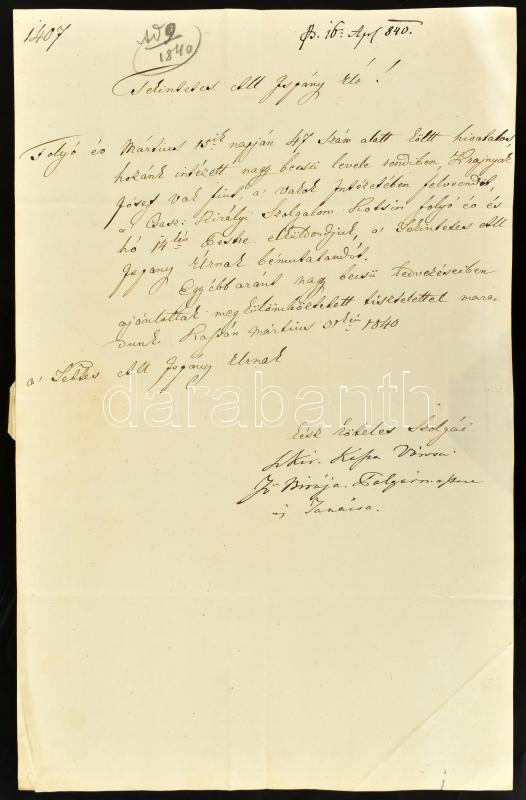 1407
Ad 9
1840
16: Apr 840.
Tekintetes All Ispány Úr!
Folyó év Mártius 15ik napján 47 szám alatt költt hivatalos
hozánk intézett nagy becsü levele rendiben, Hrajnyak
József vak fiút, a' vakok Intézetében felvendőt,
Királyi Szolgalom folyó év és
hó 14kén Pestre elküldendjük, a' Tekintetes All
Ispány Úrnak bémutatandót.
Egyébbaránt nagy becsü kedvezéseiben
ajánlottak megkülömböztetett tisztelettel mara-
dunk. Kassán mártius 31kén 1840
a' Tettes All Ispány Úrnak
darabanth
kész köteles Szolgái
Sz Kir. Kassa Városa
Fő Birája. Polgármestere
's Tanácsa.